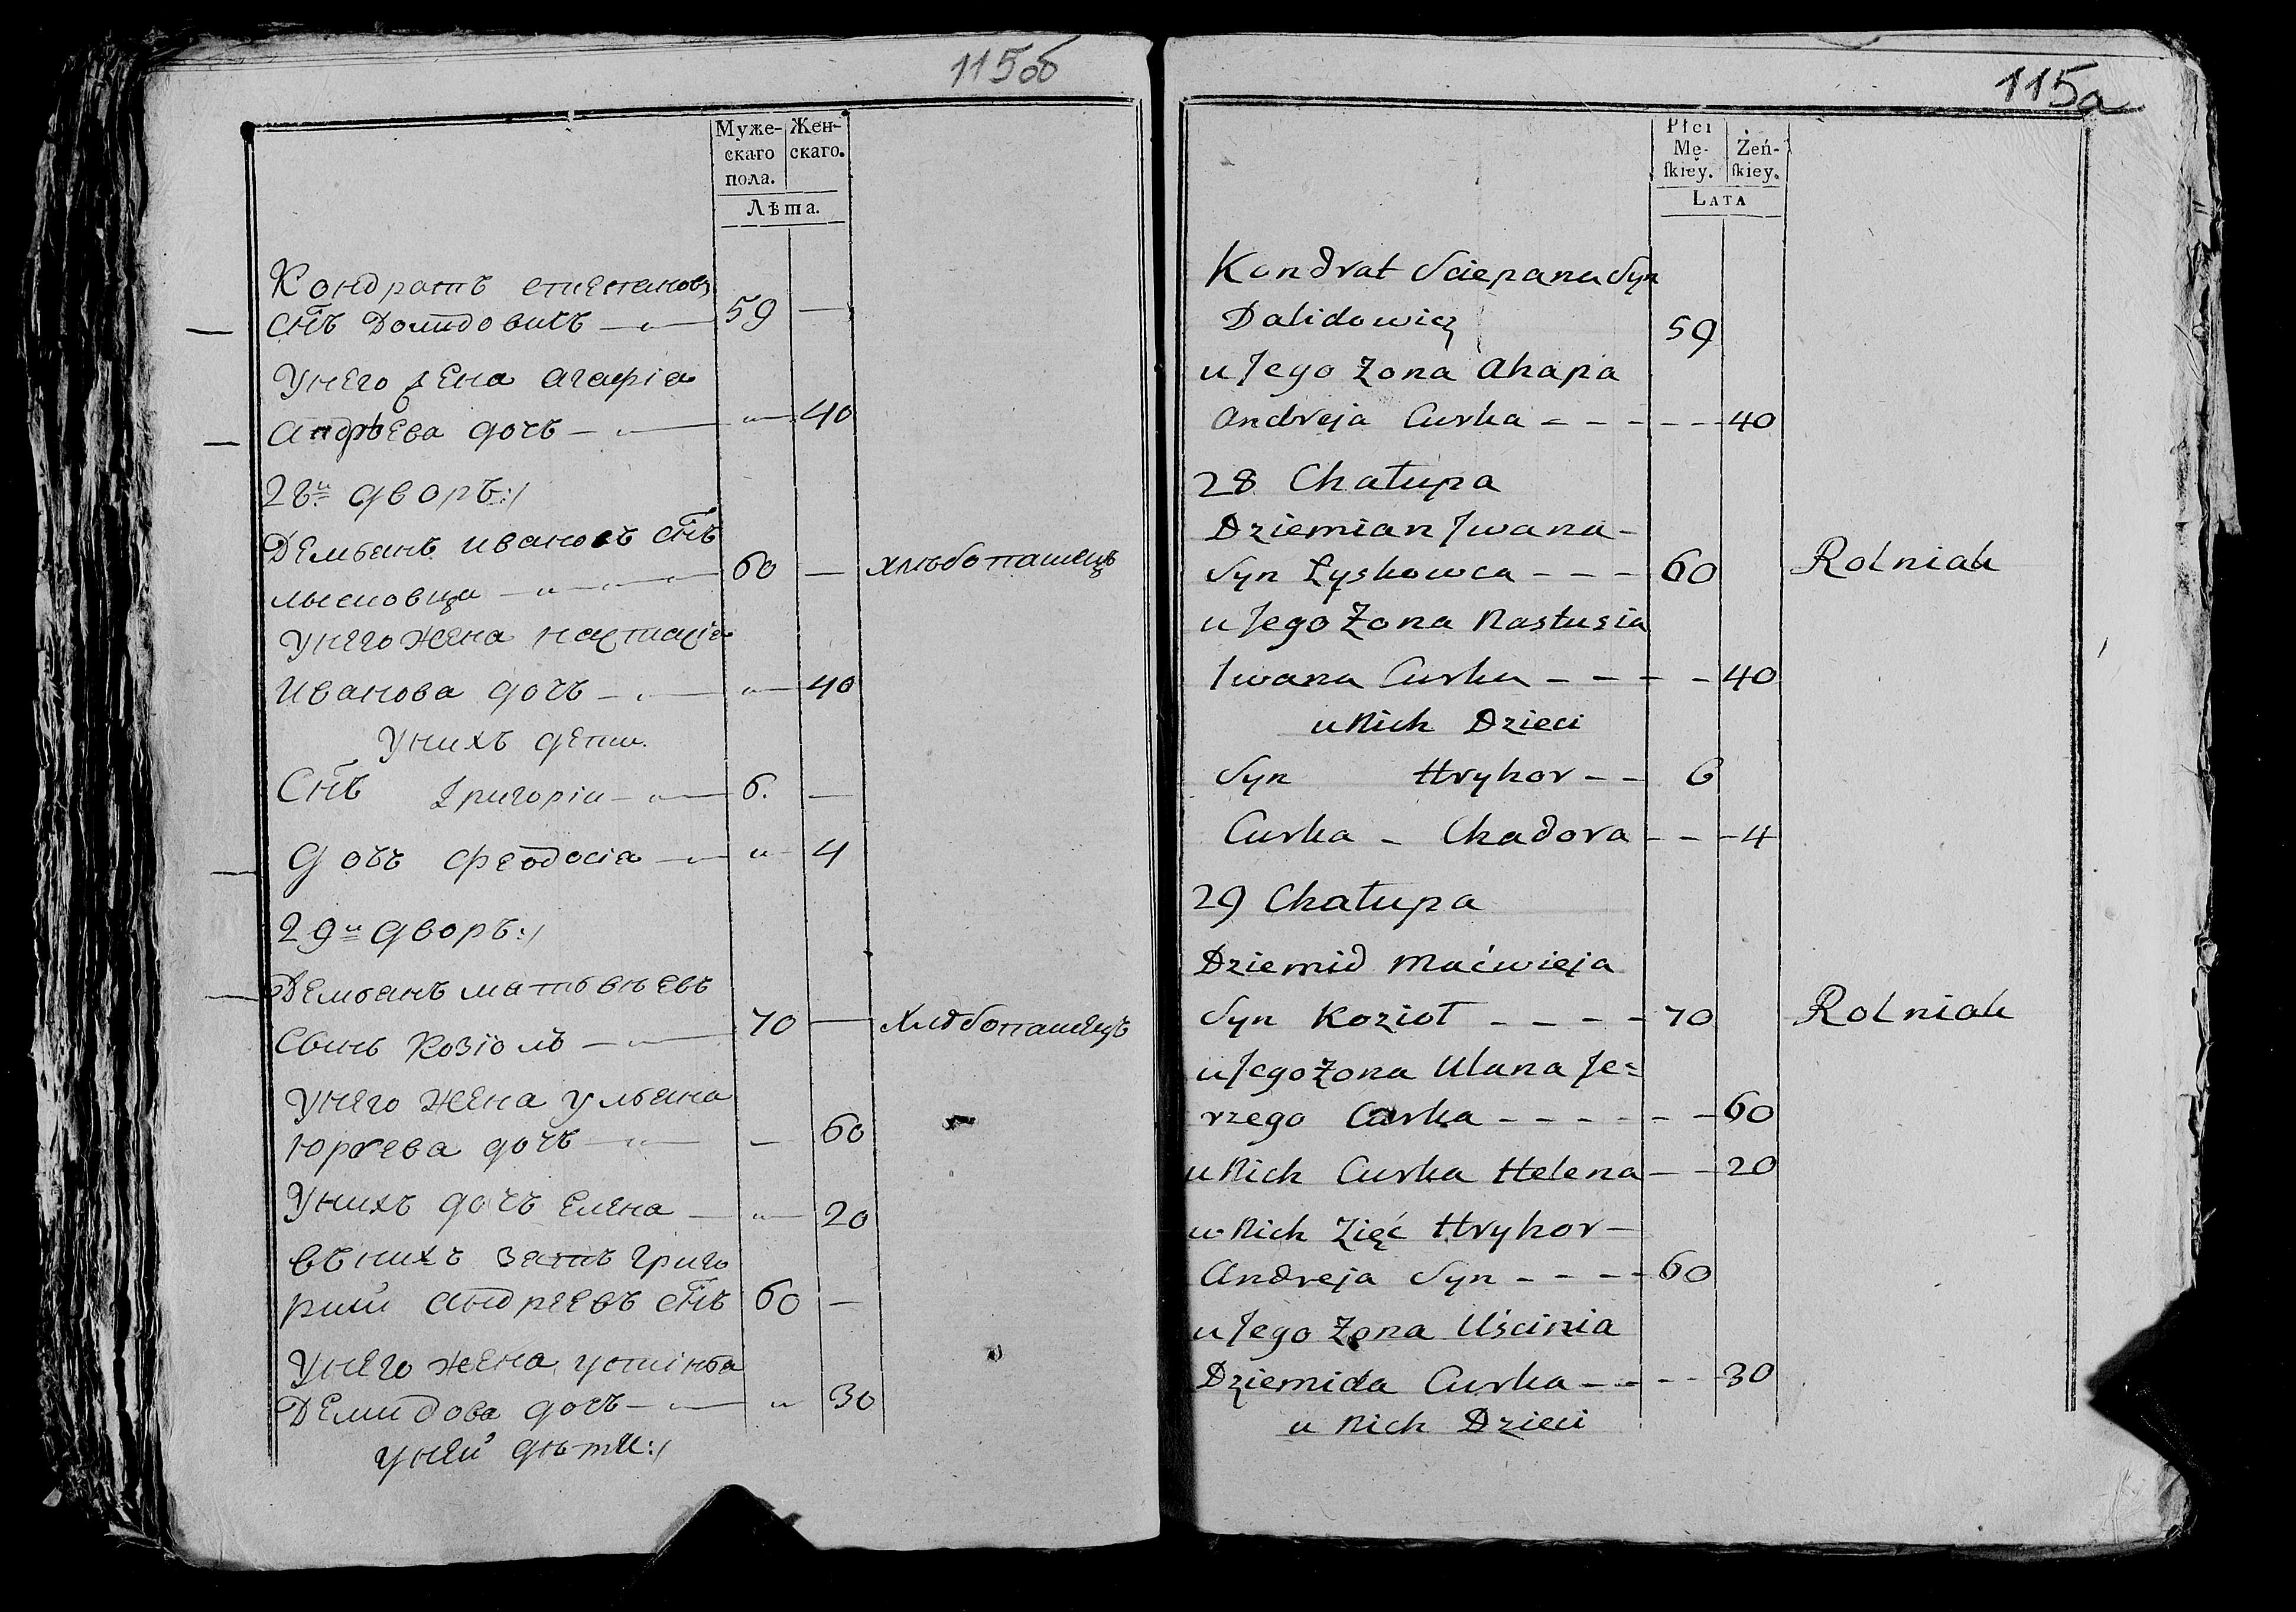 115об
Муже- Жен-
скаго скаго.
пола.
Лѣта.
Кондратъ степановъ
сн҃ъ Домидовичъ — 59 —
Унего жена агафіа
андрѣева дочь — „ — 40
28й дворъ:/
Демьянъ ивановъ сн҃ъ
лысковца — 60 — хлѣбопашецъ
Унего жена настасіа
Иванова дочь — „ — 40
Унихъ дети.
Сн҃ъ Григоріи — 6. —
Дочь феодосіа — „ 4
29й дворъ:/
Демьянъ матвѣевъ
Сынъ Козіолъ — 70 — Хлѣбопашецъ
Унего жена ульяна
Юрьева дочь — — 60
Унихъ дочь Елена — „ — 20
въ нихъ зять григо
рий андреевъ сн҃ъ 60 —
Унего жена устінья
Демидова дочь — „ 30
уней дѣти:/
115a
Płci
Mę- Żeń-
ſkiey. ſkiey.
LATA
Kondrat Sciepana Syn
Dalidowicz 59
u Jego Żona Ahapa
Andreja Curka - - - - - 40
28 Chałupa
Dziemian Jwana-
Syn Łyskowca - - - 60 Rolniak
u Jego Żona Nastusia
Iwana Curka - - - - 40
u Nich Dzieci
Syn Hryhor - - 6
Curka - Chadora - - - 4
29 Chałupa
Dziemid Maćwieja
Syn Kozioł - - - - 70 Rolniak
u Jego Żona Ulana Je=
rzego Curka - - - - - - 60
u Nich Curka Helena - - 20
u Nich Zięć Hryhor -
Andreja Syn - - - - 60
u Jego Żona Uścinia
Dziemida Curka - - - - 30
u Nich Dzieci